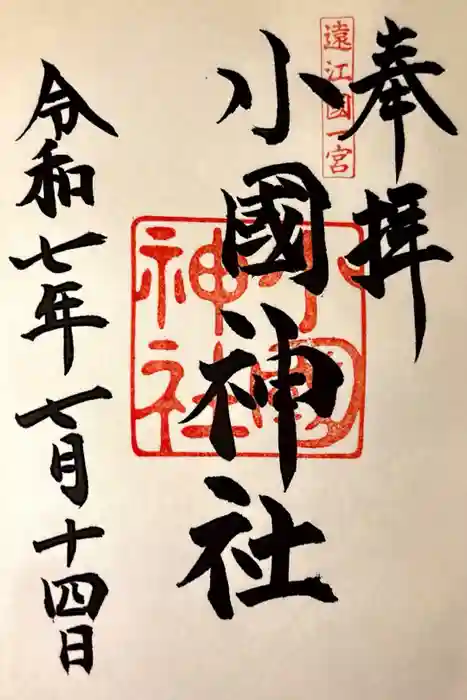 奉拝
遠江國一宮
小國神社
小國
神社
令和七年七月十四日